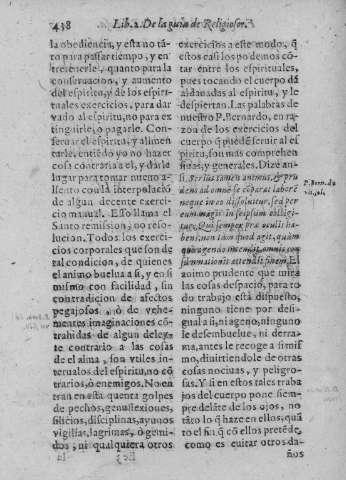 438 Lib. 2. De la guia de Religiosos.
la obediencia, y esta no tã
to para passar tiempo, y en
tretenerle, quanto para la
conseruacion, y aumento
del espiritu, y de los espiri-
tuales exercicios, para dar
vado al espiritu, no para ex
tinguirle, o pagarle. Con-
seruar el espiritu, y alimen
tarle, entiẽdo yo no hazer
cosa contraria a el, y darle
lugar para tomar nueuo a-
liento con la interpolaciõ
de algun decente exerci-
cio manual. Esto llama el
Santo remission, no reso-
lucion. Todos los exerci-
cios corporales que son de
tal condicion, de quienes
el animo buelua a si, y en si
mismo con facilidad, sin
contradicion de afectos
pegajosos, o de vehe-
mentes imaginaciones cõ-
trahidas de algun deley-
te contrario a las cosas
de el alma, son vtiles in-
terualos del espiritu, no cõ
trarios, o enemigos. No en
tran en esta quenta golpes
de pechos, genuflexiones,
silicios, disciplinas, ayunos
vigilias, lagrimas, o gemi-
dos, ni qualquiera otros
exercicios a este modo, q̃
estos casi los podemos cõ-
tar entre los espirituales,
pues tocando el cuerpo dã
aldauadas al espiritu, y le
despiertan. Las palabras de
nuestro P. Bernardo, en ra-
zon de los exercicios del
cuerpo q̃ pueden seruir al es
piritu, son mas comprehen
siuas, y generales. Dize an-
si. Serius tamen animus, & pru
dens ad omnẽ se cõparat laborẽ
neque in eo dissoluitur, sed per
eum magis in seipsum colligi-
tur. Qui semper præ oculis ha-
bens, non tàm quod agit, quàm
quò agendo intendit, omnis con
summationis attendit finem. El
animo prudente que mira
las cosas despacio, para to
do trabajo està dispuesto,
ninguno tiene por desi-
gual a si, ni ageno, ninguno
le desembuelue, ni derra-
ma, antes le recoge a si mis
mo, diuirtiendole de otras
cosas nociuas, y peligro-
sas. Y si en estos tales traba
jos del cuerpo pone siem-
pre delãte de los ojos, no
tãto lo que en ellos haze, quã
to el fin q̃ cõ ellos pretẽde,
como es euitar otros da-
P. Bern. de
Ee 3
ños